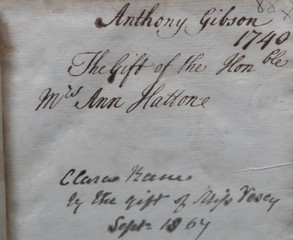 Anthony Gibson
1740
The Gift of the Hon ble
Mrs Ann Hattone
Clara
by the gift of Miss Vesey
Sept 1867